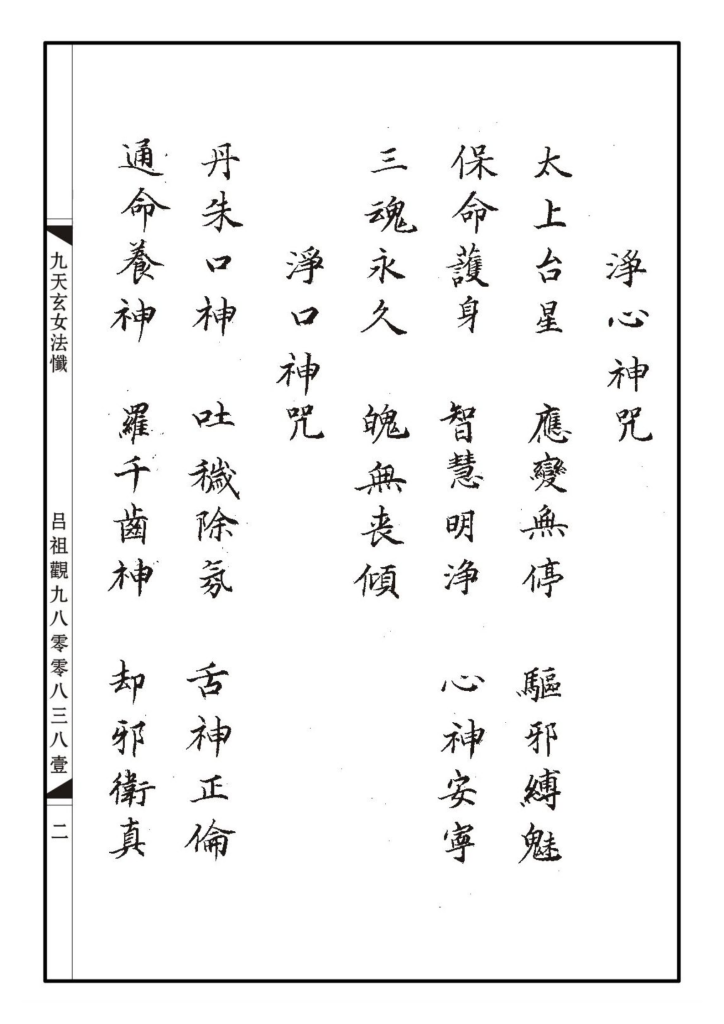 淨心神咒
太上台星 應變無停 驅邪縛魅
保命護身 智慧明淨 心神安寧
三魂永久 魄無喪傾
淨口神咒
丹朱口神 吐穢除氛 舌神正倫
通命養神 羅千齒神 却邪衛真
九天玄女法懺
吕祖觀九八零零八三八壹
二